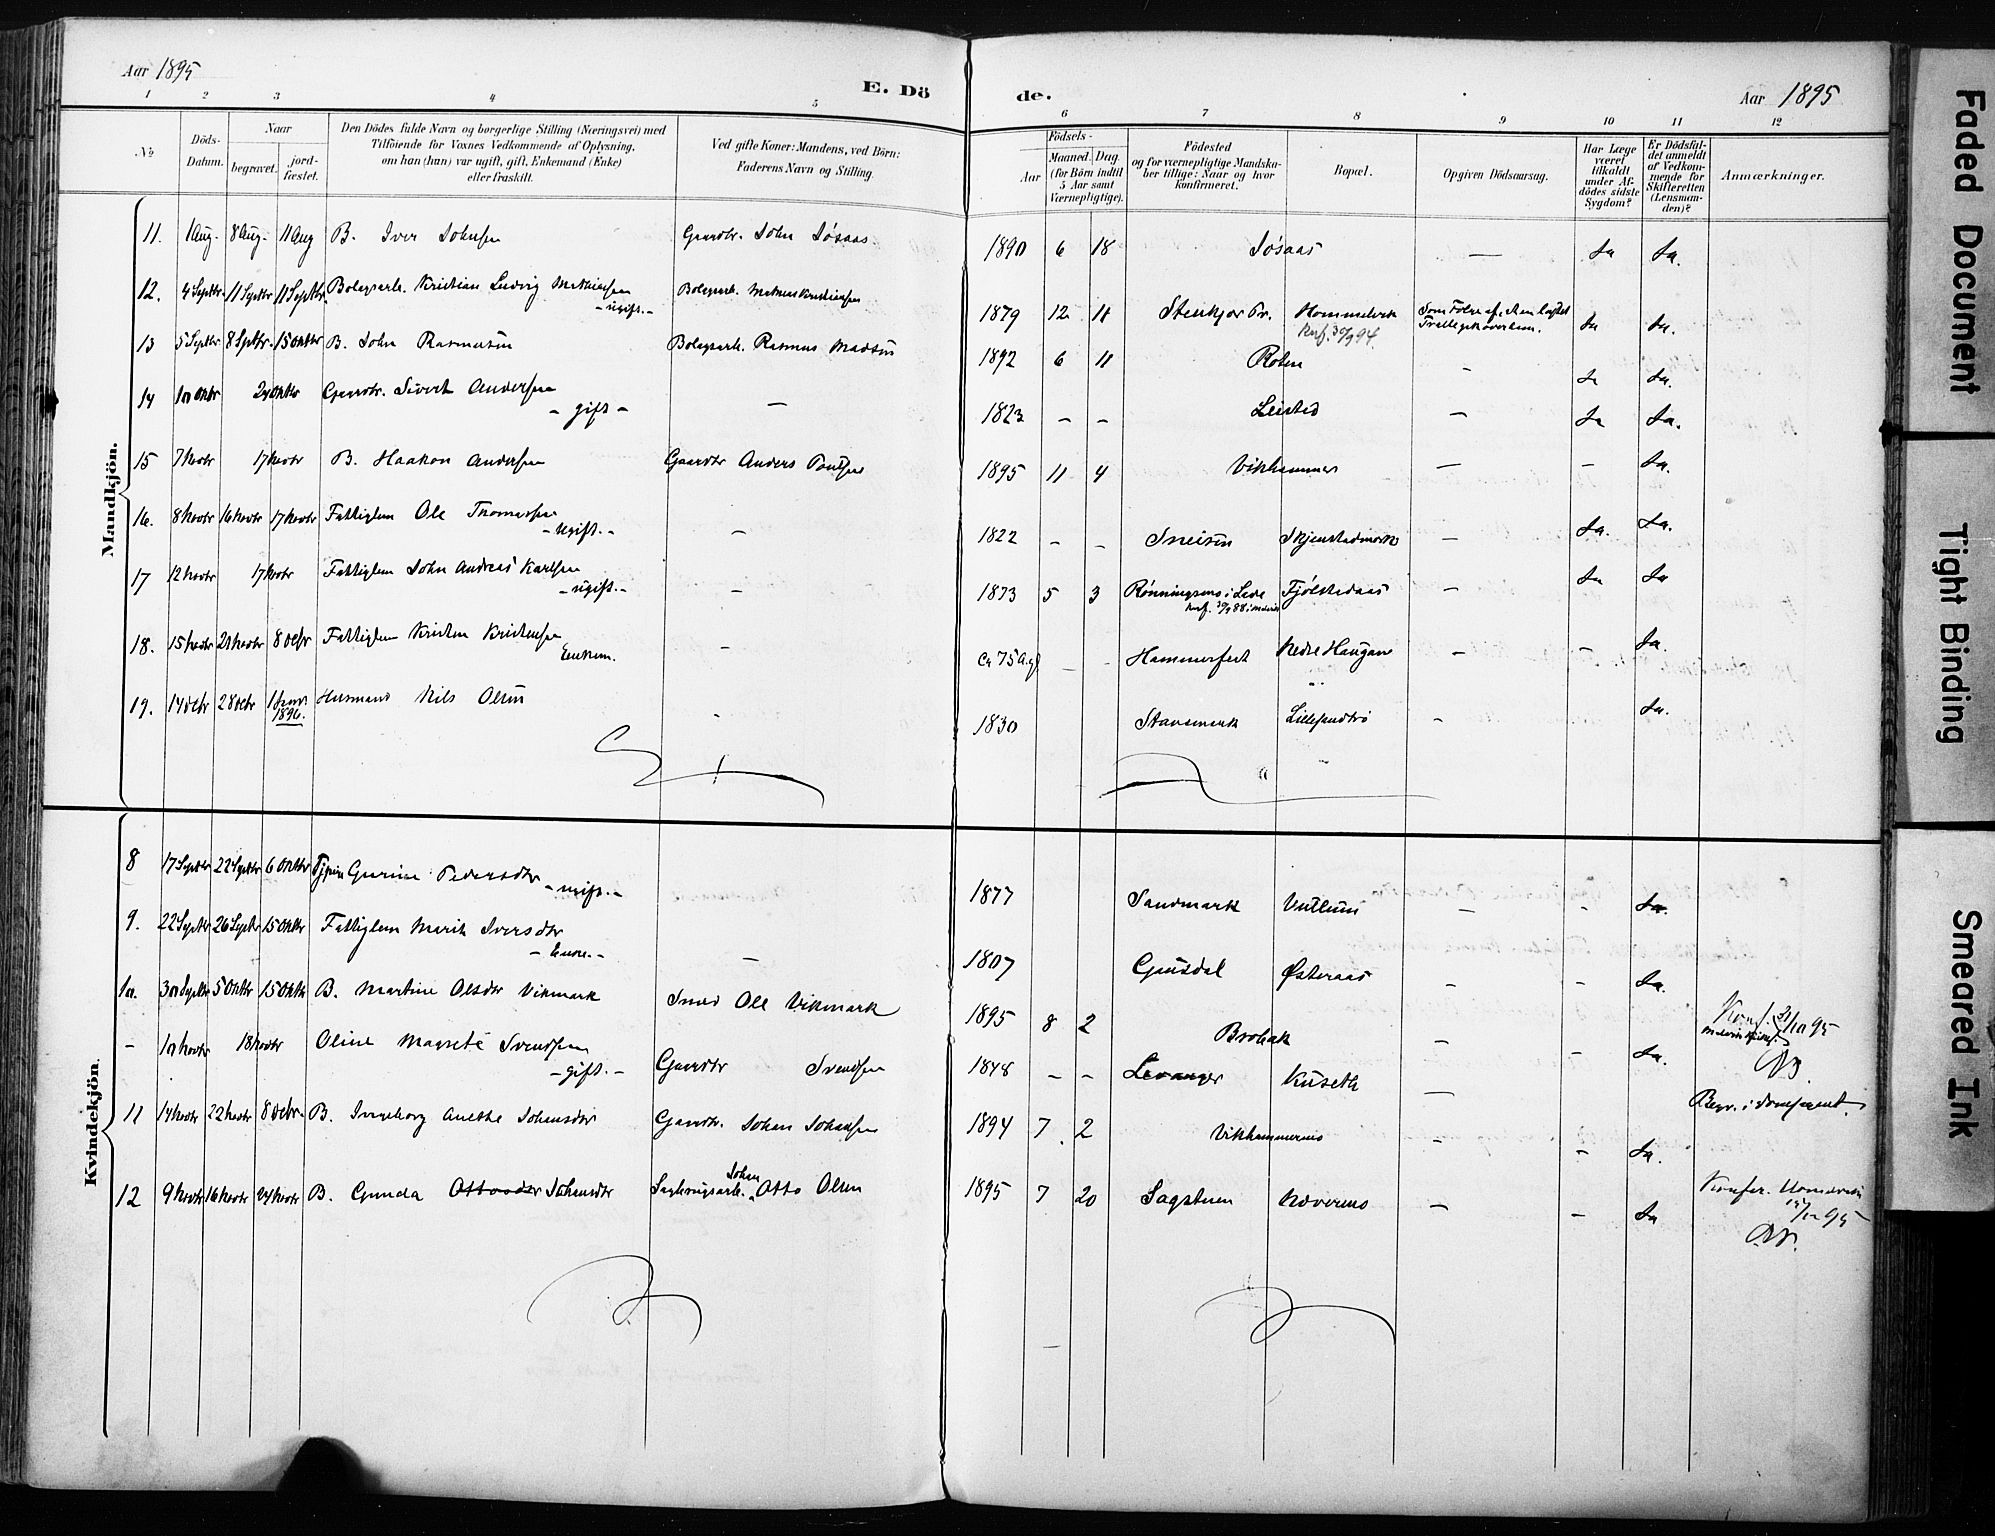 Aar 1895
E. Dö de.
Aar 1895
1 2 3 4 5 6 7 8 9 10 11 12
No
Döds-Datum.
Naar
begravet.
jord-fæstet.
Den Dödes fulde Navn og borgerlige Stilling (Næringsvei) med
Tilföiende for Voxnes Vedkommende af Oplysning,
om han (hun) var ugift, gift, Enkemand (Enke)
eller fraskilt.
Ved gifte Koner: Mandens, ved Börn:
Faderens Navn og Stilling.
Födsels-
Aar
Maaned. Dag.
(for Börn indtil
5 Aar samt
Værnepligtige).
Födested
og for værnepligtige Mandska-
ber tillige: Naar og hvor
konfirmeret.
Bopæl.
Opgiven Dödsaarsag.
Har Læge
været
tilkaldt
under Af-
dödes sidste
Sygdom?
Er Dödsfal-
det anmeldt
af Vedkom-
mende for
Skifteretten
(Lensman-
den)?
Anmærkninger.
Mandkjön.
11. 1 Aug. 8 Aug. 11 Aug B. Iver Johnsen Gaardbr. John Sösaas. 1890 6 18 Sösaas — Ja Ja.
12. 4 Septbr. 11 Septbr 11 Septbr. Bolagsarb. Kristian Ludvig Mathiasen - ugift. - Bolagsarb. Kristiansen 1879 12 11 Stenkjær Pr. Hommelvik Konf. 30/9 94. Som Følge af Ja Ja.
13 5 Septbr 8 Septbr. 15 Oktbr B. John Rasmusen Bolagsarb. Rasmus Madsen 1892 6 11 Roten - Ja Ja.
14 10 Oktbr 24 Oktbr Gaardbr. Sivert Andersen - gift - — 1823 - - Leistad — Ja Ja.
15 7 Novbr 17 Novbr B. Haakon Andersen Gaardbr Anders Paulsen 1895 11 4 Vikhammer — - Ja.
16. 8 Novbr 16 Novbr 17 Novbr Fattiglem Ole Thomassen - Ugift. - - 1822 - - Sneisen Skjenstadmark - Ja. Ja.
17 12 Novbr 17 Novbr Fattiglem John Andreas Karlsen - ugift. - - 1873 5 3 Rønningsens i Lexe Konf. 30/9 88 i Fjölstadaas - Ja Ja
18. 15 Novbr 21 Novbr 8 Decbr Fattiglem Kristen Kristensen Enkem. - Ca 75 A. gl - - Hammerfest Nedre Haugan - - Ja.
19. 14 Decbr 28 Decbr 1 Janr. 1896. Husmand Nils Olsen - 1830 Stavsmark - Ja.
Kvindekjön.
8 17 Septbr 22 Septbr 6 Oktbr Tjpige Gurine Pedersdtr - ugift. - 1877 Sandmark Vullum - - Ja.
9. 22 Septbr 26 Septbr 15 Oktbr Fattiglem Marit Iversdtr - Enke. - — 1807 Gausdal Østeraas - - Ja.
10. 30 Septbr 5 Oktbr 15 Oktbr B. Martine Olsdtr Vikmark Smed Ole Vikmark 1895 8 2 Brobak - - Ja. Konf. 95
- 10 Novbr 18 Novbr Oline Margrete Svendsen - gift. - Gaardbr Svendsen 1848 - - Levanger Kuseth — Begr. i
11 14 Novbr 22 Novbr 8 Decbr. B. Ingeborg Anethe Johansdtr Gaardbr. Johan Johansen 1894 7 2 Vikhammermo - - Ja.
12 9 Novbr 16 Novbr 24 Novbr B. Gunda Ottosdtr Johansdtr Sagbrugsarb. Johan Otto Olsen 1895 7 20 Sagstuen - - Ja 95
Faded Document
Tight Binding
Smeared Ink